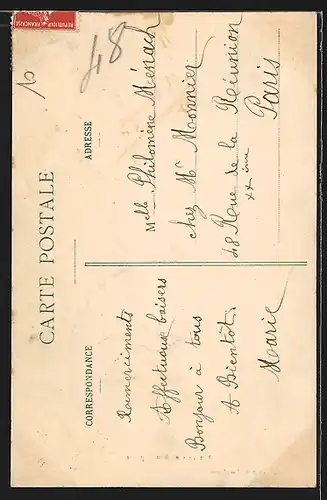 RÉPUBLIQUE FRANÇAISE
10
48
CARTE POSTALE
CORRESPONDANCE
Remerciments
Affectueux baisers
Bonjour à tous
A Bientôt.
Marie
ADRESSE
Melle Philomène Ménach
chez Mr Monnier
48 Rue de la Réunion
XX ème
Paris